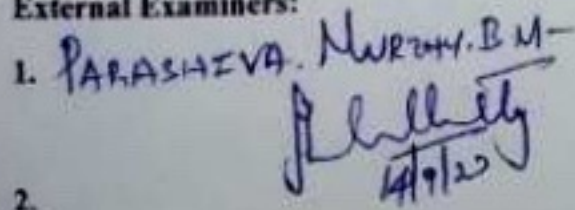 External Examiners:
1. PARASHIVA. MURTHY. B M-
14/9/20
2.